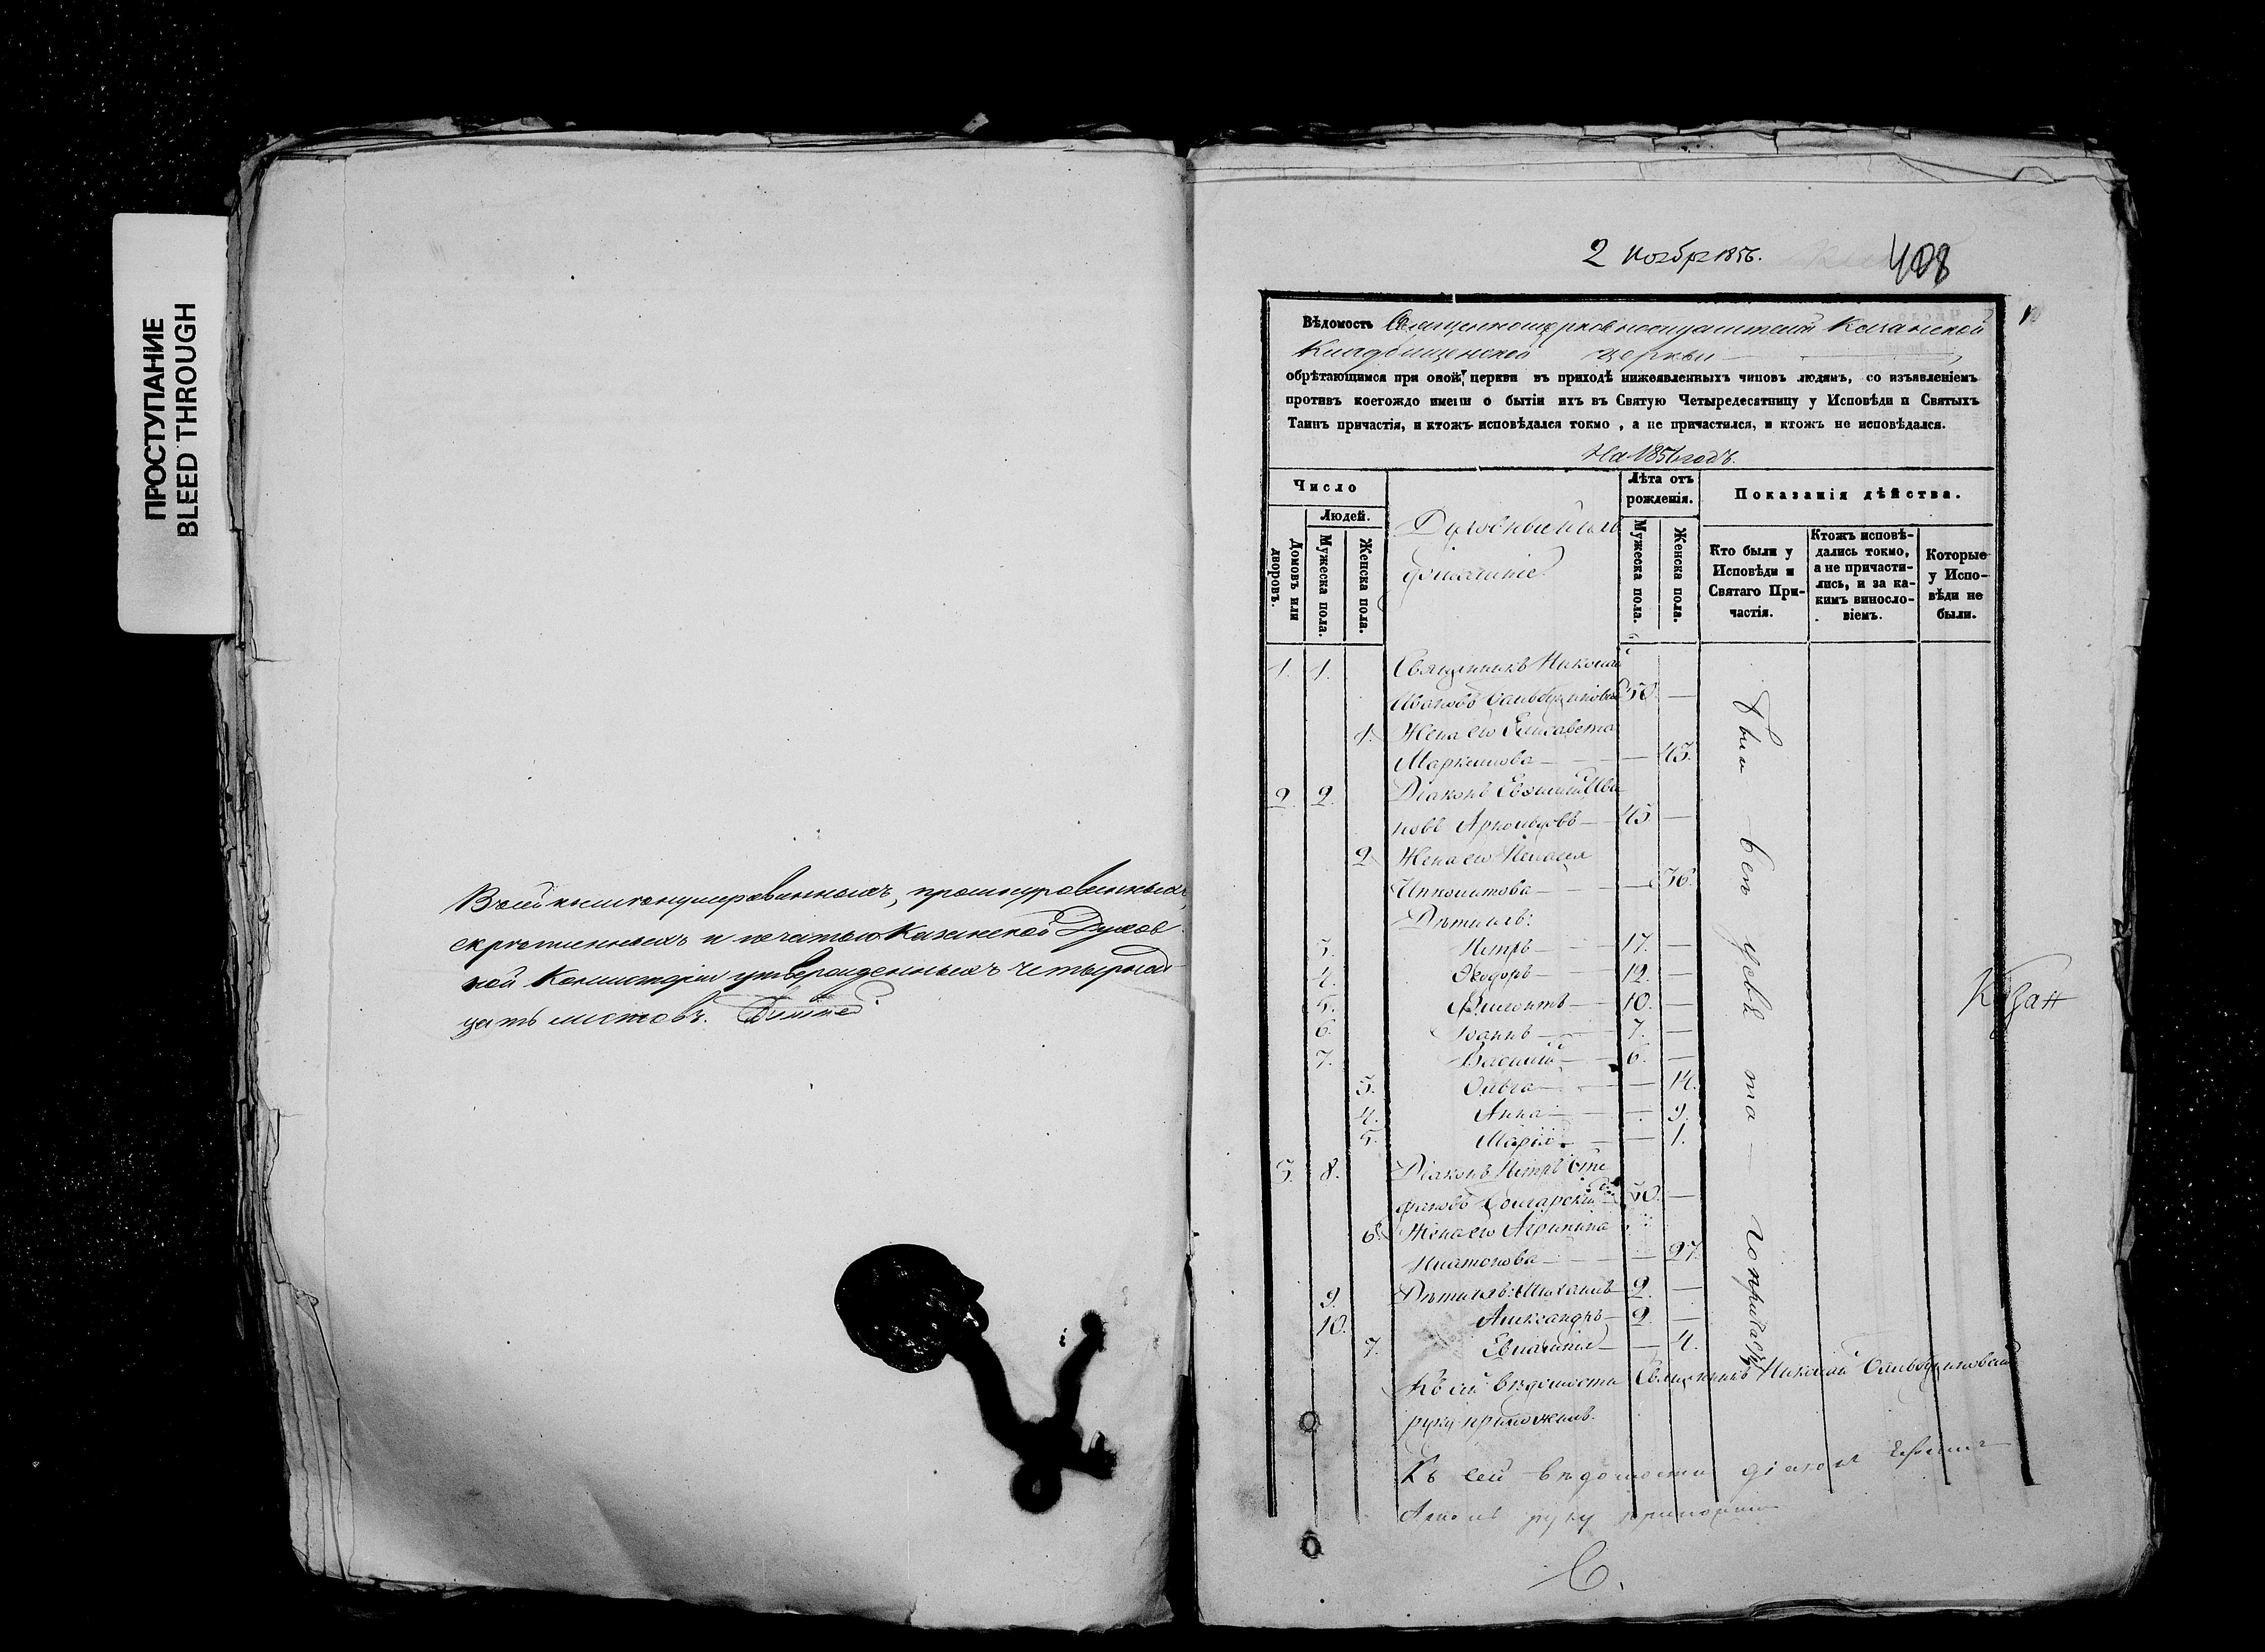 ПРОСТУПАНИЕ
BLEED THROUGH
В сей книге нумерованныхъ, прошнурованныхъ,
скрепленныхъ и печатью Казанской Духов
ной Консисторіи утвержденныхъ четырнад
цать листовъ.
2 Ноября 1856.
408
Вѣдомость Священноцерковнослужителей Казанской
Кладбищенской церкви
обрѣтающимся при оной церкви въ приходѣ нижеявленныхъ чиновъ людямъ, со изъявленіемъ
противъ коегождо имени о бытіи ихъ въ Святую Четыредесятницу у Исповѣди и Святыхъ
Таинъ причастія, и ктожъ исповѣдался токмо, а не причастился, и ктожъ не исповѣдался.
На 1856 годъ.
Число
Людей.
Домовъ или дворовъ.
Мужеска пола.
Женска пола.
Духовныи и ихъ
домашніе.
Лѣта отъ
рожденія.
Мужеска пола.
Женска пола.
Показанія дѣйства.
Кто были у
Исповѣди и
Святаго При-
частія.
Ктожъ исповѣ-
дались токмо,
а не причасти-
лись, и за ка-
кимъ виносло-
віемъ.
Которые
у Испо-
вѣди не
были.
1. 1. Священникъ Николай
Ивановъ 50. —
1. Жена его Елисавета
— 45.
2. 2. Діаконъ Евѳимій Ива
новъ — 45 —
2. Жена его Пелагея
— 36.
Дѣти ихъ:
3. Петръ — 17. —
4. Ѳеодоръ — 12. —
5. Филиппъ — 10. —
6. Іоаннъ — 7. —
7. Василій — 6. —
3. Ольга — — 14.
4. Анна — — 9.
5. Марія — — 1.
3. 8. Діаконъ Петръ Сте
фановъ Болгарскій 30. —
6. Жена его Агрипина
Платонова — — 27.
9. Дѣти ихъ: Михаилъ 2. —
10. Александръ — 2. —
7. Евлампія — — 4.
Казан
Къ сей вѣдомости Священникъ Николай
руку приложилъ.
Къ сей вѣдомости діаконъ
руку приложилъ